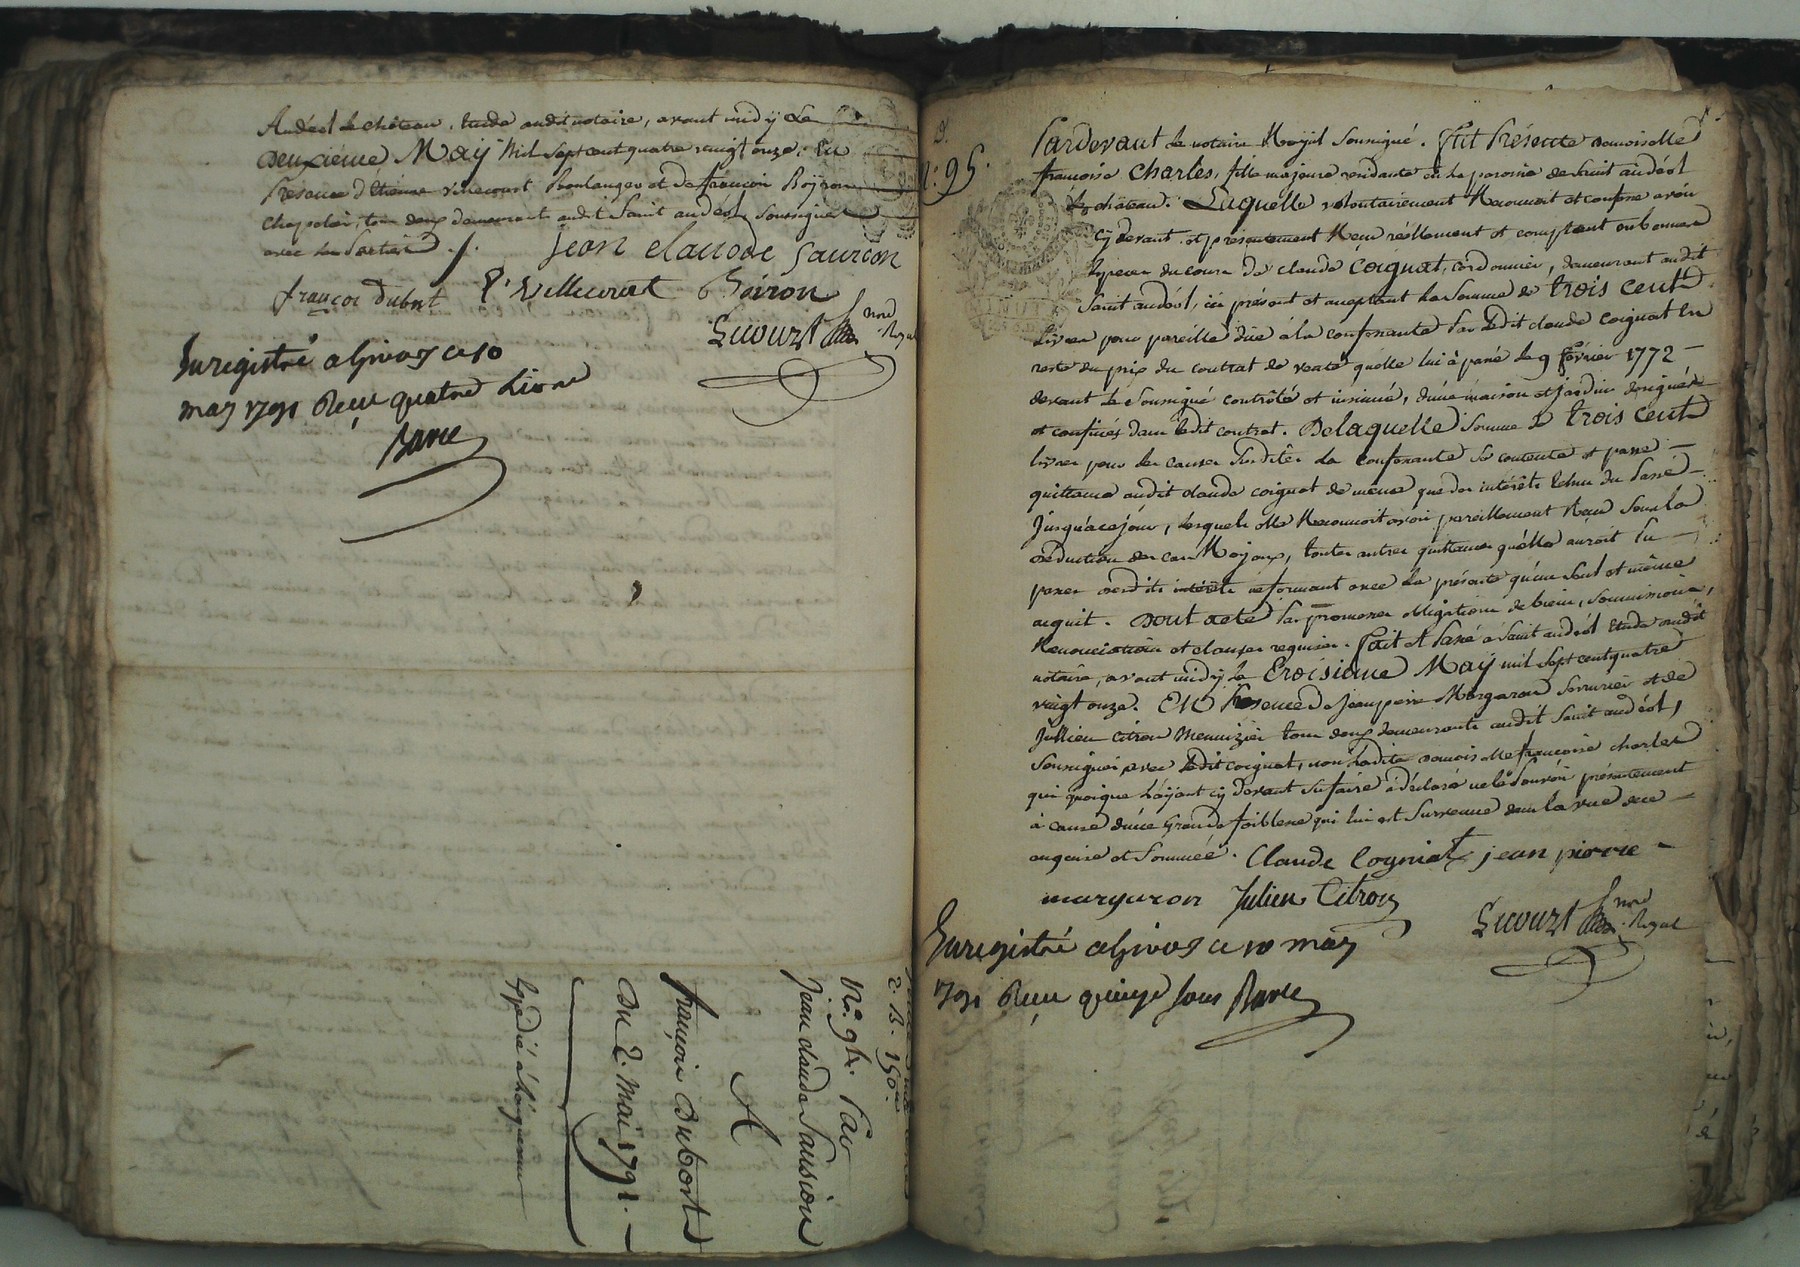 Andéol le château, Etude dudit notaire, avant midÿ Le
Deuxieme Maÿ Mil Sept cent quatre vingt onze, En
Presence d'Etienne villecourt Boulanger et de françois Boÿron
Chapelier, tous deux demeurants audit Saint andéol, Soussignés
avec les Parties ./.
jean claude Saurcon
françoi Dubost E. villecourt Boiron
Lecourt nore Royal
Enregistré a Givors ce 10
may 1791 Reçu quatre Livres
Barre
2. B. 150
N.° 94. Par
Jean claude Saussion
A
françois Dubost
Du 2. Mai 1791. —
Expédié à l'acquereur
N.° 95.
Pardevant le notaire Roÿal Soussigné. Fut Présente Demoiselle
françoise Charles, fille majeure rendante en la paroisse de Saint andéol
le château. Laquelle volontairement Reconnoit et confesse avoir
cÿ devant et présentement Reçu réellement et comptant en bonnes
Especes du cours de claude Coignat, cordonnier, demeurant audit
Saint andéol, ici présent et aceptant La Somme de trois cents
Livres pour pareille düe à la confessante Par Ledit claude coignat En
reste du prix du contrat de vente qu'elle lui à passé le 9 février 1772 —
devant le Soussigné contrôlé et insinué, d'une maison et jardin désignés
et confinés dans ledit contrat. De laquelle Somme de trois cents
livres pour les causes Susdites La confessante se contente et passe —
quittance audit claude coignat de même que des intérêts Echus du Passé —
Jusqu'a ce jour, lesquels elle Reconnoit avoir pareillement Reçu Sous la
déduction des cas Roÿaux, toutes autres quittances qu'elle auroit Pu —
passer desdits intérêts ne formant avec la présente qu'un Seul et même
acquit. Dont acte Par promesses obligations de biens, Soumissions,
Renonciations et clauses requises. Fait et Passé à Saint andéol Etude dudit
notaire, avant midÿ Le Troisieme Maÿ mil Sept cent quatre
vingt onze. En Presence de Jean pierre Margaron Serrurier et de
Jullien Citron Menuizier tous deux demeurants audit Saint andéol,
Soussignés avec Ledit coignat, non Ladite Demoiselle françoise charles
qui quoique L'aÿant cÿ devant Su faire à déclaré ne le Pouvoir présentement
à cause d'une Grande foiblesse qui lui est Survenue dans la vue de ce —
enquise et Sommée. Claude Cogniat jean pierre
margaron Julien Citron
Lecourt nore Royal
Enregistré a Givors ce 10 may
1791 Reçu quinze sous Barre